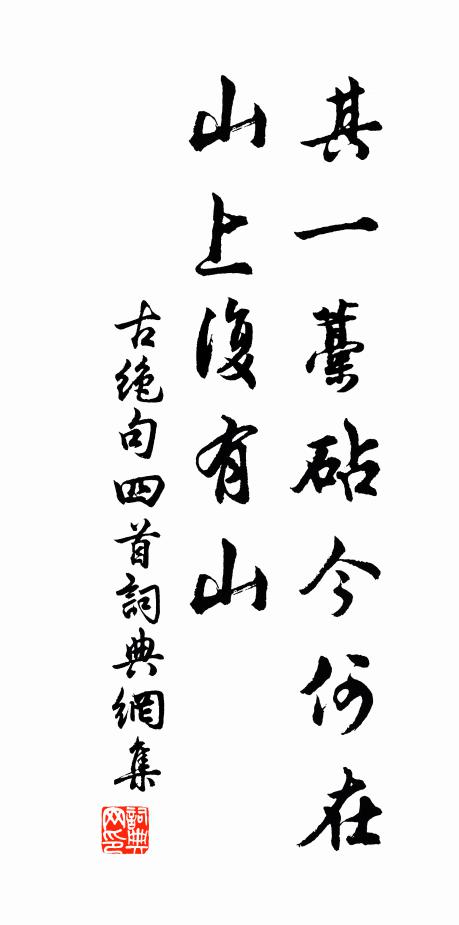 其一藁砧今何在
山上復有山
古絶句四首詞典網集
詞典
网印